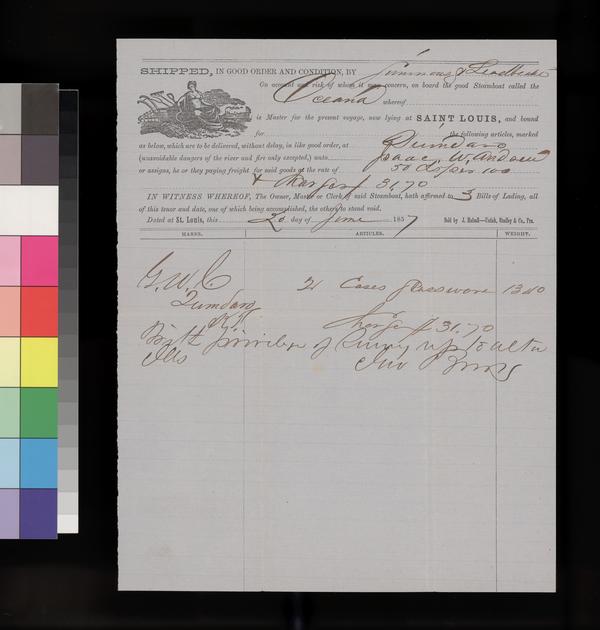 SHIPPED, IN GOOD ORDER AND CONDITION, BY Simmons & Leadbeater
On account and risk of whom it may concern, on board the good Steamboat called the
Oceana whereof
is Master for the present voyage, now lying at SAINT LOUIS, and bound
for the following articles, marked
as below, which are to be delivered, without delay, in like good order, at Quindaro
(unavoidable dangers of the river and fire only excepted,) unto Isaac W.
or assigns, he or they paying freight for said goods at the rate of 50 cts per 100
& Charges $ 31,70
IN WITNESS WHEREOF, The Owner, Master or Clerk of said Steamboat, hath affirmed to 3 Bills of Lading, all
of this tenor and date, one of which being accomplished, the others to stand void.
Dated at St. Louis, this 20 day of June 1857
Sold by J. Halsall—Unfah, Studley & Co., Prs.
MARKS. ARTICLES. WEIGHT.
G. W. C 21 Cases Glassware 1340
Quindaro
K.T. Charges $ 31,70
With privilege of up to Alton
Ills Jno